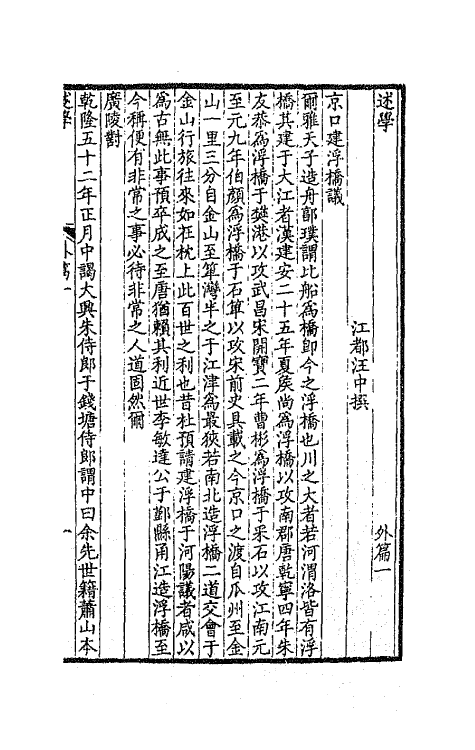 述學
外篇一
江都汪中撰
京口建浮橋議
爾雅天子造舟郭璞謂比船爲橋卽今之浮橋也川之大者若河渭洛皆有浮
橋其建于大江者漢建安二十五年夏矦尚爲浮橋以攻南郡唐乾寧四年朱
友恭爲浮橋于樊港以攻武昌宋開寶二年曹彬爲浮橋于采石以攻江南元
至元九年伯顏爲浮橋于石䈄以攻宋前史具載之今京口之渡自瓜州至金
山一里三分自金山至䈄灣半之于江津爲最狹若南北造浮橋二道交會于
金山行旅往來如在枕上此百世之利也昔杜預請建浮橋于河陽議者咸以
爲古無此事預卒成之至唐猶賴其利近世李敏達公于鄞縣甬江造浮橋至
今稱便有非常之事必待非常之人道固然爾
廣陵對
乾隆五十二年正月中謁大興朱侍郎于錢塘侍郎謂中曰余先世籍蕭山本
述學
外篇一
一